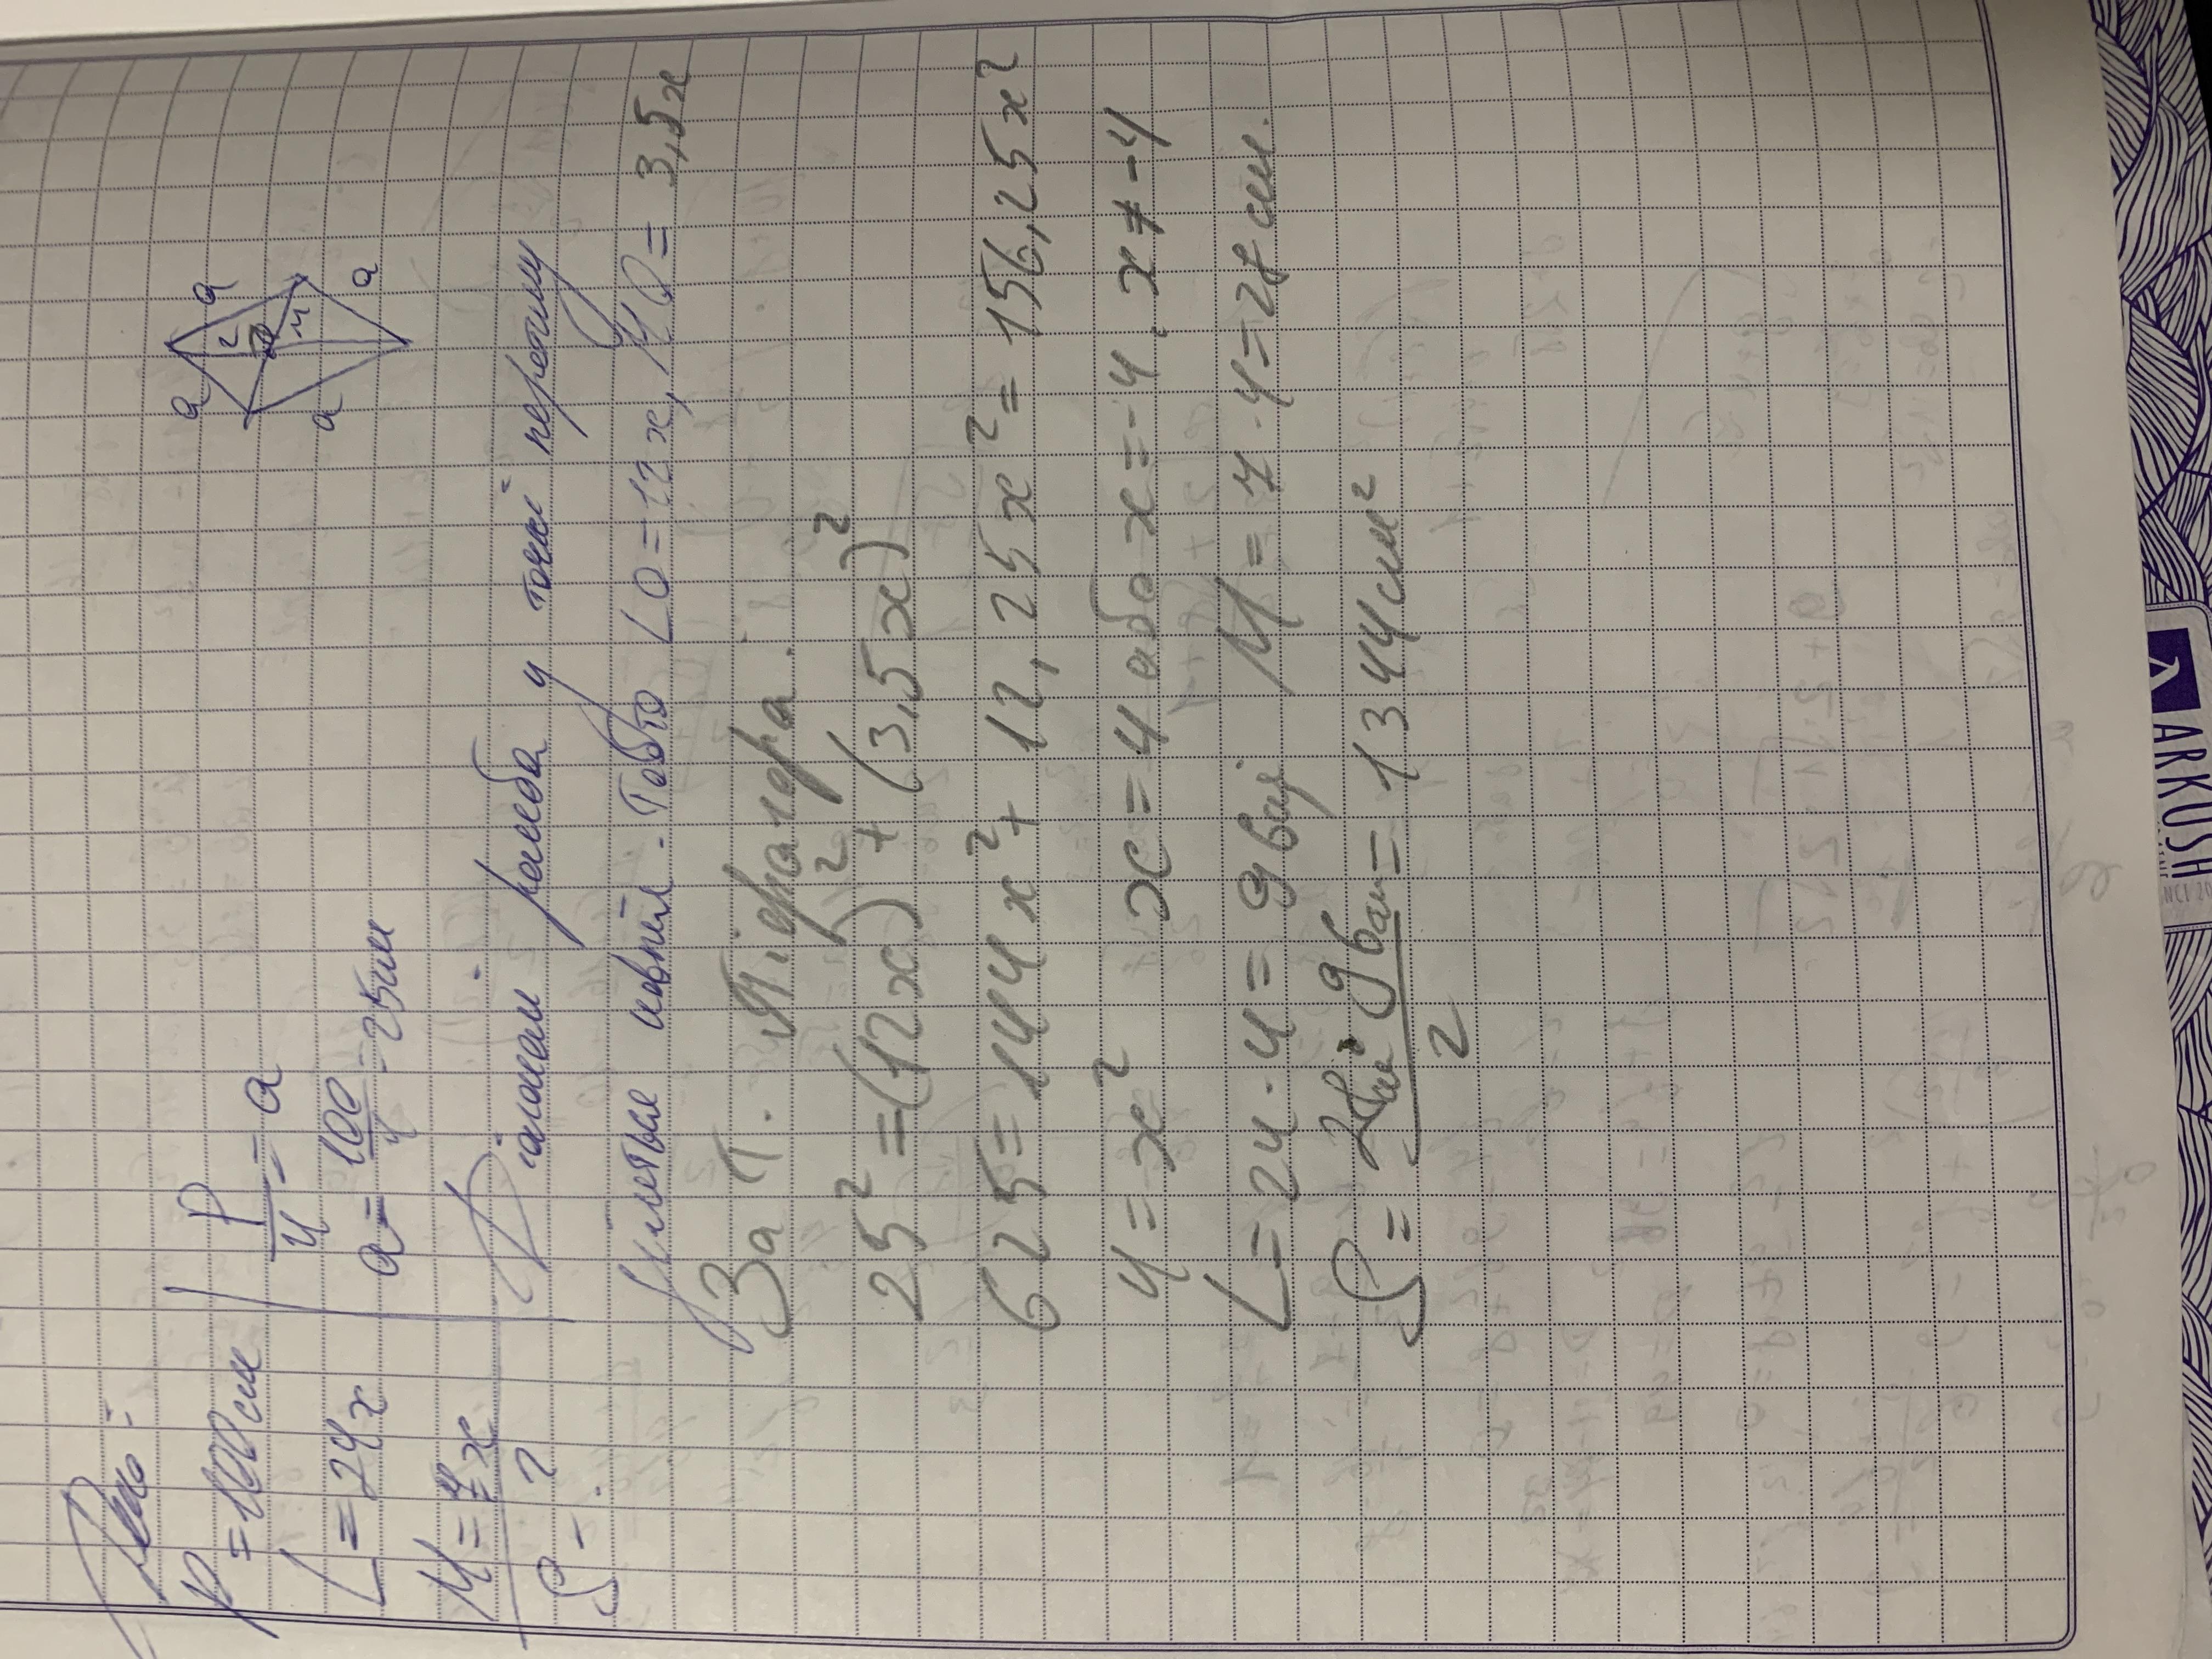 Дано:
P = 100 см
L = 24x
M = 7x
S - ?
P/4 = a
a = 100/4 = 25см
a a
L
M
a a
Діагоналі ромба у точкі перетину
діляться навпіл. Тобто LO = 12x, MO = 3,5x
За т. Піфагора.
25² = (12x)² + (3,5x)²
625 = 144x² + 12,25x² = 156,25x²
4 = x² x = 4 або x = -4. x ≠ -4
L = 24 · 4 = 96см M = 7 · 4 = 28 см.
S = 28см · 96см / 2 = 1344 см²
ARKUSH